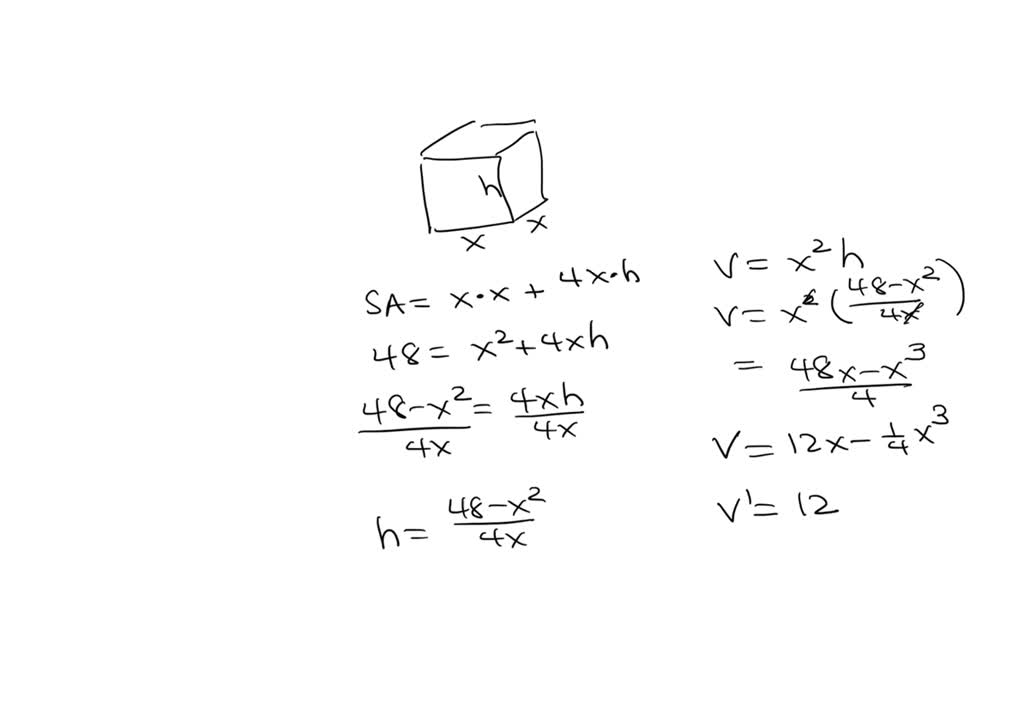 h
x
x
SA = x·x + 4x·h
48 = x² + 4xh
48-x² / 4x = 4xh / 4x
h = 48-x² / 4x
V = x²h
V = x² (48-x² / 4x)
= 48x-x³ / 4
V = 12x - 1/4 x³
V' = 12